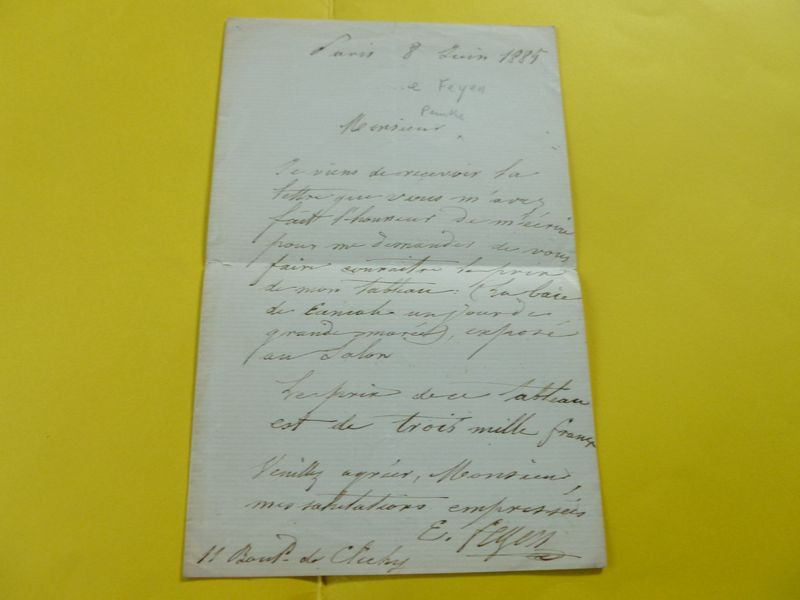 Paris 8 Juin 1885
e Feyen
Peintre
Monsieur,
Je viens de recevoir la
lettre que vous m'avez
fait l'honneur de m'écrire
pour me demander de vous
faire connaitre le prix
de mon tableau : (La baie
de Cancale un jour de
grande marée), exposé
au Salon
Le prix de ce tableau
est de trois mille francs
Veuillez agréer, Monsieur,
mes salutations empressées
E. Feyen
11 Bould. de Clichy